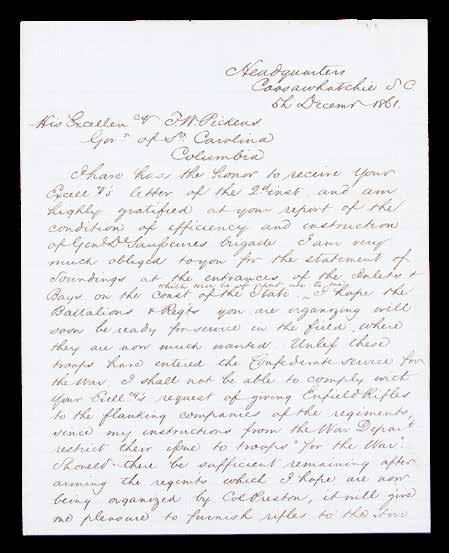 Headquarters
Coosawhatchie S.C.
5th Decemr 1861.
His Excellency F W Pickens
Govr of So. Carolina
Columbia
I have had the honor to receive your
Excelly's letter of the 2d inst, and am
highly gratified at your report of the
condition of efficiency and instruction
of Genl De Saussures brigade. I am very
much obliged to you for the statement of
Soundings at the entrances of the Inlets &
which may be of great use to me
Bays on the Coast of the State. I hope the
Battalions & Regts you are organizing will
soon be ready for service in the field, where
they are now much wanted. Unless these
troops have entered the Confederate service for
the War, I shall not be able to comply with
your Excelly's request of giving Enfield Rifles
to the flanking companies of the regiments,
since my instructions from the War Departt
restrict their issue to troops "for the War".
Should there be sufficient remaining after
arming the regimts which I hope are now
being organized by Col Preston, it will give
me pleasure to furnish rifles to the two